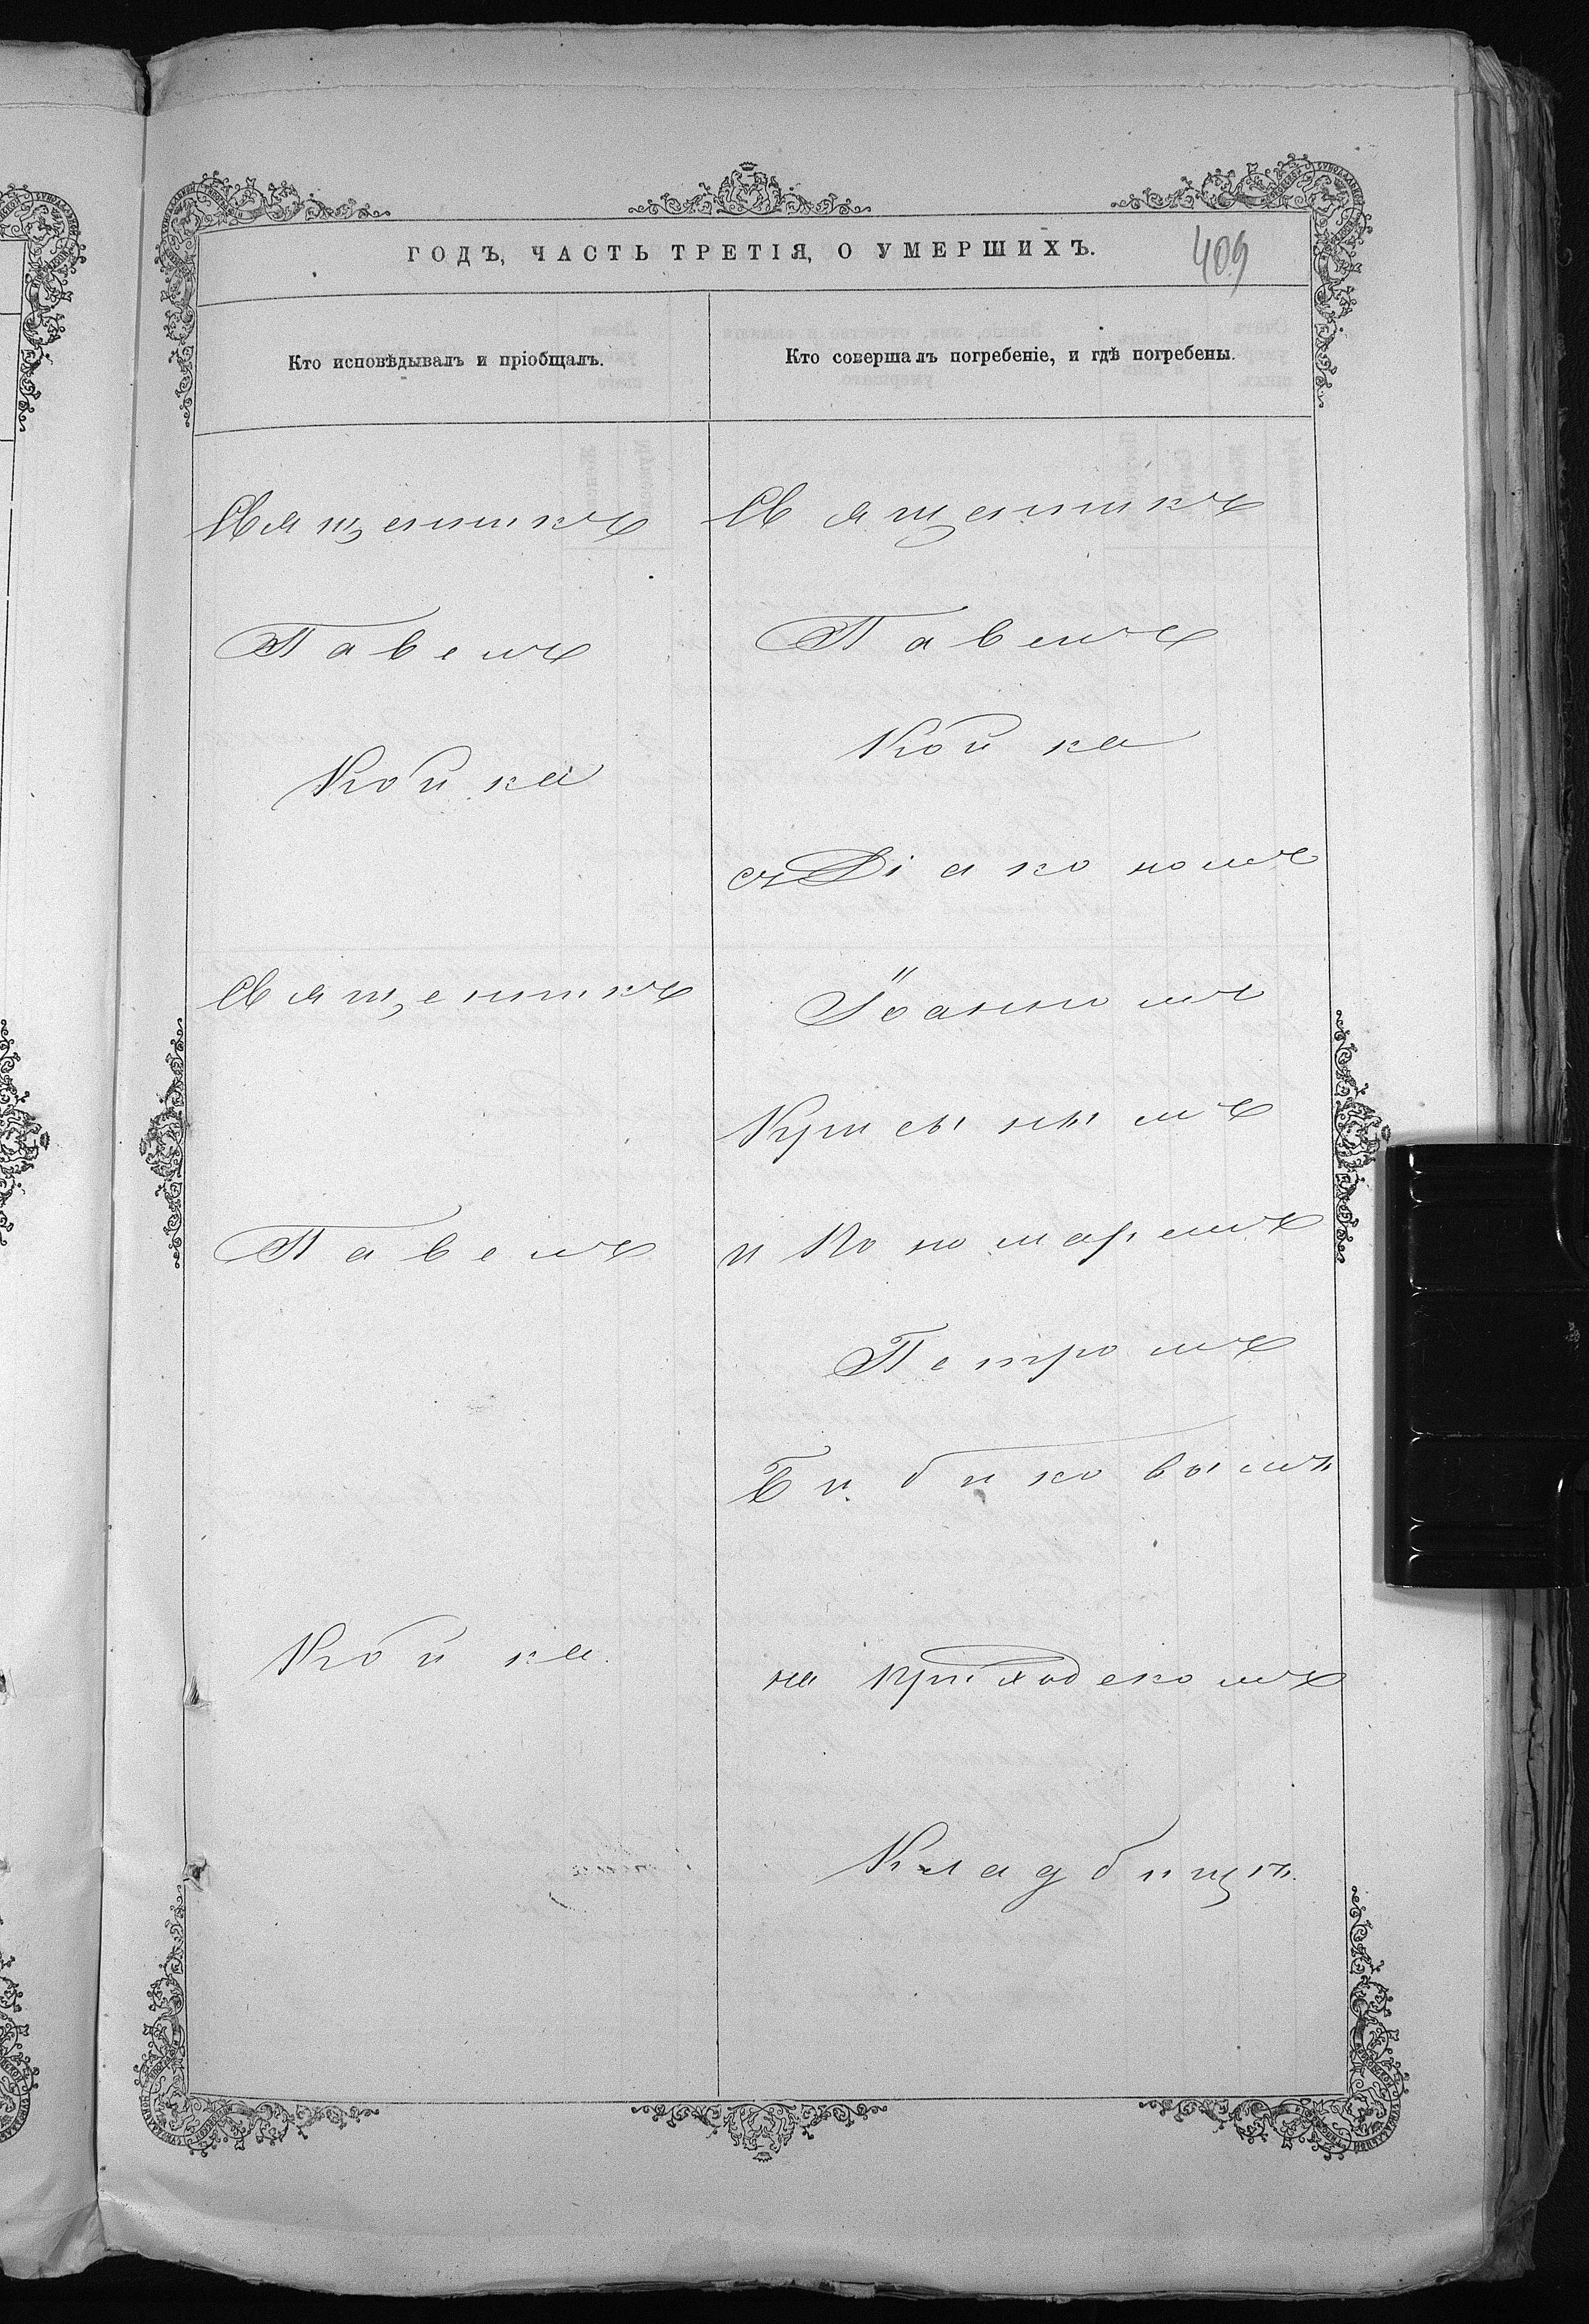 ГОДЪ, ЧАСТЬ ТРЕТІЯ, О УМЕРШИХЪ.
409
Кто исповѣдывалъ и пріобщалъ.
Священникъ
Павелъ
Койка
Священникъ
Павелъ
Койка.
Кто совершалъ погребеніе, и гдѣ погребены.
Священникъ
Павелъ
Койка
съ Діакономъ
Іоанномъ
и Пономаремъ
Петромъ
Бибиковымъ
на приходскомъ
Кладбищѣ.